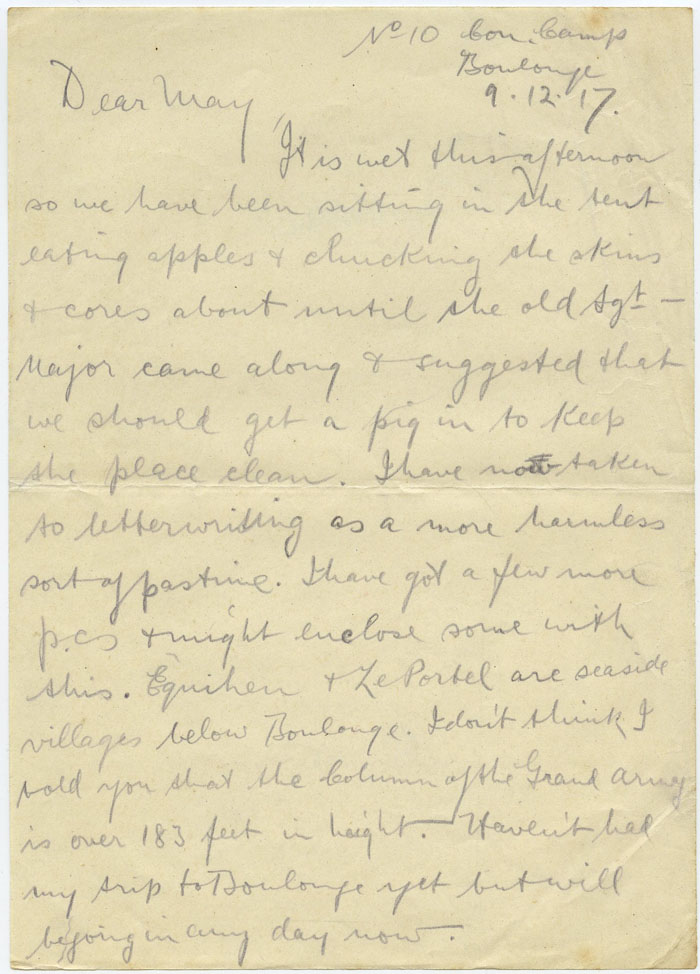 No 10 Con. Camp
Boulonge
9.12.17.
Dear May,
It is wet this afternoon
so we have been sitting in the tent
eating apples & chucking the skins
& cores about until the old Sgt –
Major came along & suggested that
we should get a pig in to keep
the place clean. I have now taken
to letterwriting as a more harmless
sort of pastime. I have got a few more
p.cs & might enclose some with
this. Equihen & Le Portel are seaside
villages below Boulonge. I don't think I
told you that the Column of the Grand Army
is over 183 feet in height. Haven't had
my trip to Boulonge yet but will
be going in any day now.